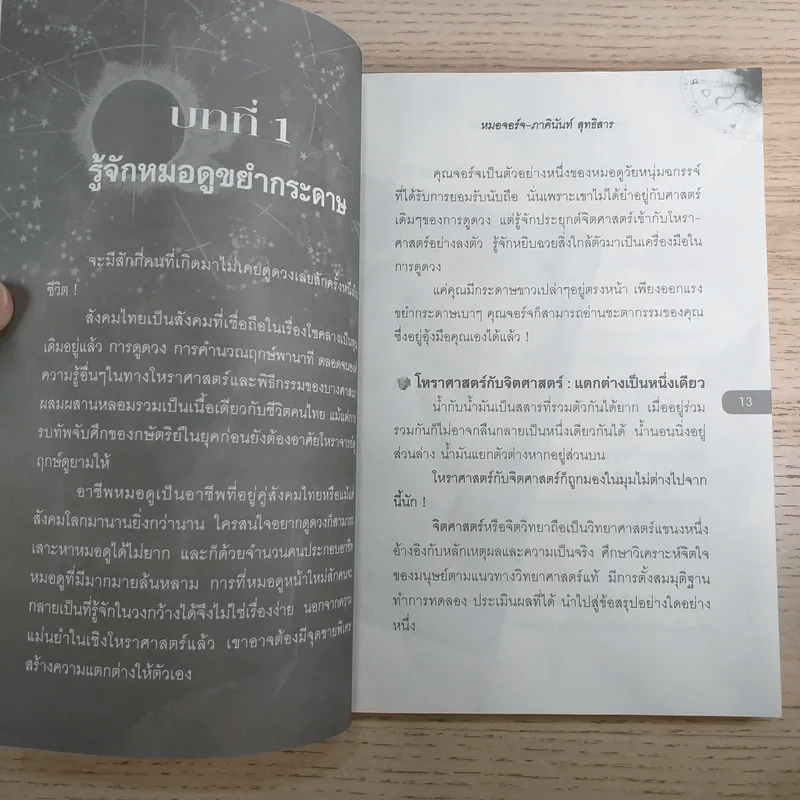 บทที่ 1
รู้จักหมอดูขยำกระดาษ
จะมีสักกี่คนที่เกิดมาไม่เคยดูดวงเลยสักครั้งหนึ่งใน
ชีวิต !
สังคมไทยเป็นสังคมที่เชื่อถือในเรื่องโชคลางเป็นทุน
เดิมอยู่แล้ว การดูดวง การคำนวณฤกษ์พานาที ตลอดจนองค์
ความรู้อื่นๆในทางโหราศาสตร์และพิธีกรรมของบางศาสนา
ผสมผสานหลอมรวมเป็นเนื้อเดียวกับชีวิตคนไทย แม้แต่การ
รบทัพจับศึกของกษัตริย์ในยุคก่อนยังต้องอาศัยโหราจารย์ดู
ฤกษ์ดูยามให้
อาชีพหมอดูเป็นอาชีพที่อยู่คู่สังคมไทยหรือแม้แต่
สังคมโลกมานานยิ่งกว่านาน ใครสนใจอยากดูดวงก็สามารถ
เสาะหาหมอดูได้ไม่ยาก และก็ด้วยจำนวนคนประกอบอาชีพ
หมอดูที่มีมากมายล้นหลาม การที่หมอดูหน้าใหม่สักคนจะ
กลายเป็นที่รู้จักในวงกว้างได้จึงไม่ใช่เรื่องง่าย นอกจากความ
แม่นยำในเชิงโหราศาสตร์แล้ว เขาอาจต้องมีจุดขายพิเศษ
สร้างความแตกต่างให้ตัวเอง
หมอจอร์จ-ภาคินันท์ สุทธิสาร
คุณจอร์จเป็นตัวอย่างหนึ่งของหมอดูวัยหนุ่มฉกรรจ์
ที่ได้รับการยอมรับนับถือ นั่นเพราะเขาไม่ได้ย่ำอยู่กับศาสตร์
เดิมๆของการดูดวง แต่รู้จักประยุกต์จิตศาสตร์เข้ากับโหรา-
ศาสตร์อย่างลงตัว รู้จักหยิบฉวยสิ่งใกล้ตัวมาเป็นเครื่องมือใน
การดูดวง
แค่คุณมีกระดาษขาวเปล่าๆอยู่ตรงหน้า เพียงออกแรง
ขยำกระดาษเบาๆ คุณจอร์จก็สามารถอ่านชะตากรรมของคุณ
ซึ่งอยู่อุ้งมือคุณเองได้แล้ว !
โหราศาสตร์กับจิตศาสตร์ : แตกต่างเป็นหนึ่งเดียว
น้ำกับน้ำมันเป็นสสารที่รวมตัวกันได้ยาก เมื่ออยู่ร่วม
รวมกันก็ไม่อาจกลืนกลายเป็นหนึ่งเดียวกันได้ น้ำนอนนิ่งอยู่
ส่วนล่าง น้ำมันแยกตัวต่างหากอยู่ส่วนบน
โหราศาสตร์กับจิตศาสตร์ก็ถูกมองในมุมไม่ต่างไปจาก
นี้นัก !
จิตศาสตร์หรือจิตวิทยาถือเป็นวิทยาศาสตร์แขนงหนึ่ง
อ้างอิงกับหลักเหตุผลและความเป็นจริง ศึกษาวิเคราะห์จิตใจ
ของมนุษย์ตามแนวทางวิทยาศาสตร์แท้ มีการตั้งสมมุติฐาน
ทำการทดลอง ประเมินผลที่ได้ นำไปสู่ข้อสรุปอย่างใดอย่าง
หนึ่ง
13